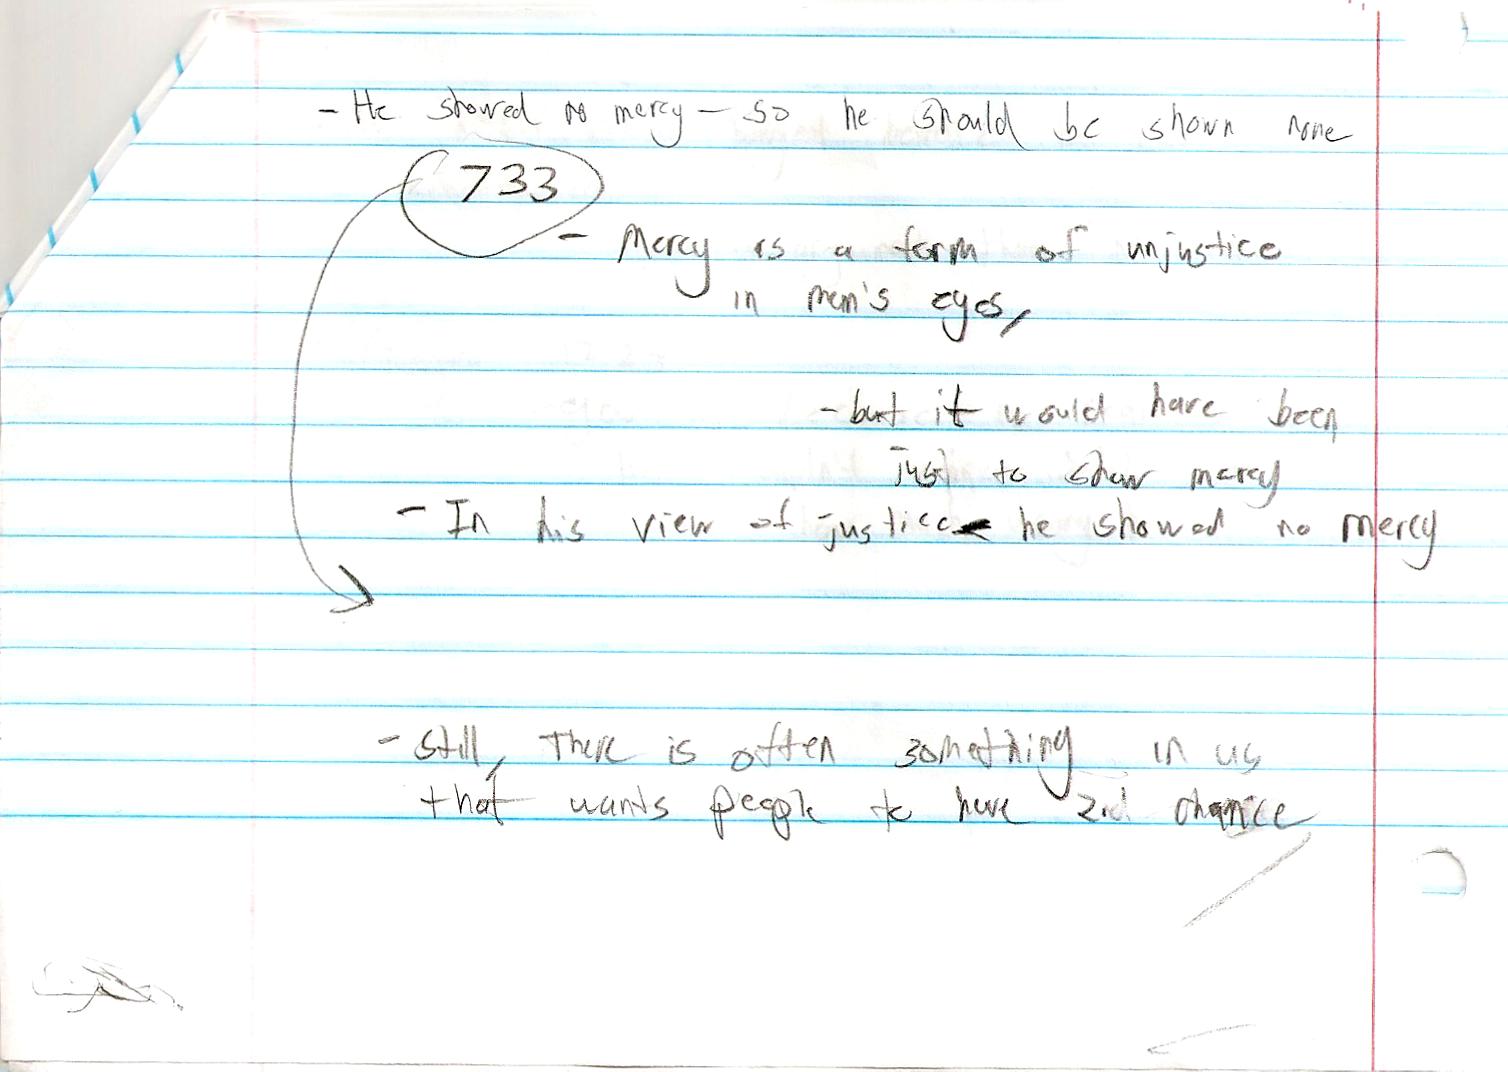 - He showed no mercy - so he should be shown none
733
- Mercy is a form of unjustice
in men's eyes,
- but it would have been
just to show mercy
- In his view of justice he showed no mercy
- Still, There is often something in us
that wants people to have 2nd chance